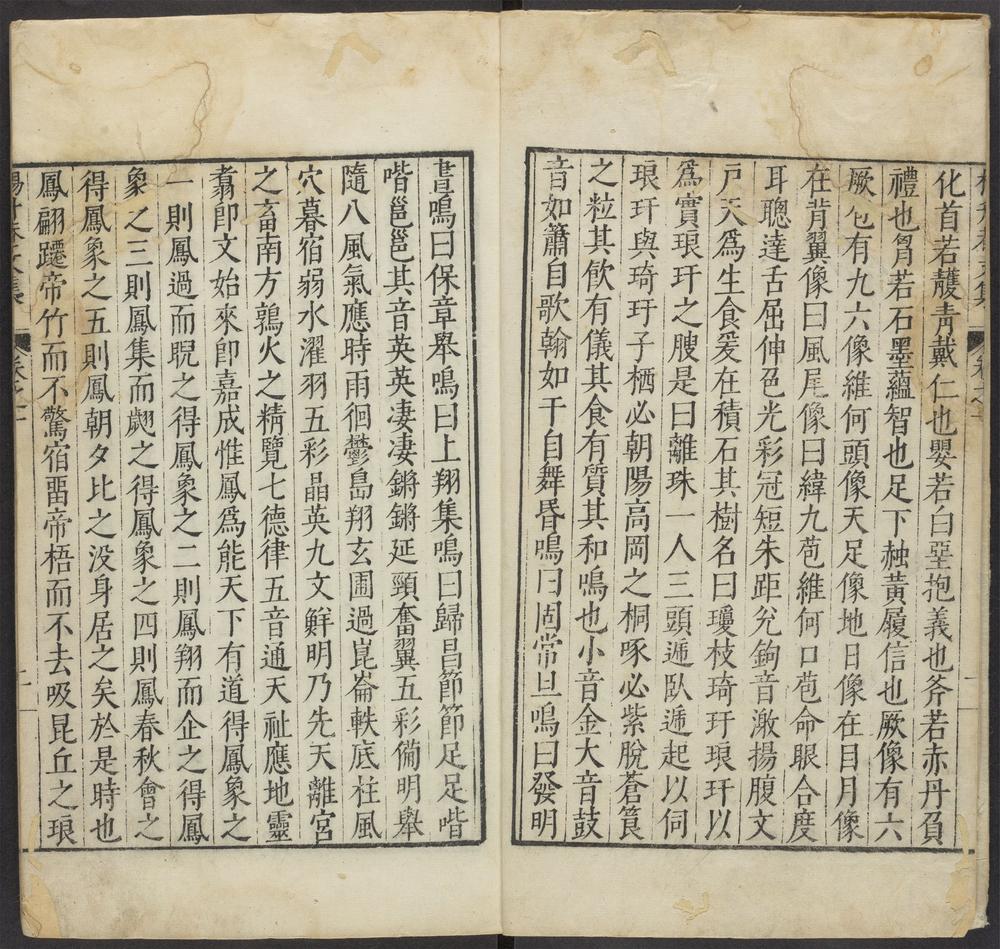 化首若䕶靑戴仁也嬰若白堊抱義也斧若赤丹負
禮也胷若石墨蘊智也足下赨黃履信也厥像有六
厥苞有九六像維何頭像天足像地日像在目月像
在背翼像曰風尾像曰緯九苞維何口苞命眼合度
耳聰達舌屈伸色光彩冠短朱距兊鉤音激揚腹文
戶天爲生食爰在積石其樹名曰瓊枝琦玗琅玕以
爲實琅玕之膄是曰離珠一人三頭遞臥遞起以伺
琅玕與琦玗子栖必朝陽高岡之桐啄必紫脫蒼筤
之粒其飮有儀其食有質其和鳴也小音金大音鼓
音如簫自歌翰如干自舞昬鳴曰固常旦鳴曰發明
晝鳴曰保章舉鳴曰上翔集鳴曰歸昌節節足足喈
喈雝雝其音英英凄凄鏘鏘延頸奮翼五彩備明舉
隨八風氣應時雨徊鬱島翔玄圃過崑崙軼底柱風
穴暮宿弱水濯羽五彩晶英九文鮮明乃先天離宮
之畜南方鶉火之精覽七德律五音通天祉應地靈
翥卽文始來卽嘉成惟鳳爲能天下有道得鳳象之
一則鳳過而睨之得鳳象之二則鳳翔而企之得鳳
象之三則鳳集而翽之得鳳象之四則鳳春秋會之
得鳳象之五則鳳朝夕比之没身居之矣於是時也
鳳翩躚帝竹而不驚宿畱帝梧而不去吸昆丘之琅